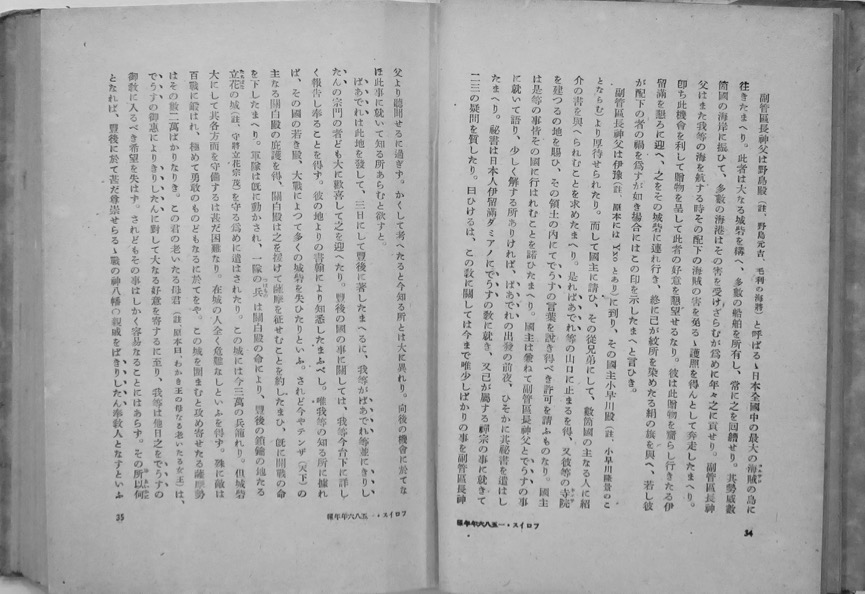 副管區長神父は野島殿（註、野島元吉、毛利の海將）と呼ばるゝ日本全國中の最大の海賊の島に
往きたまへり。此者は大なる城砦を構へ、多數の船舶を所有し、常に之を回航せり。其勢威數
箇國の海岸に振ひて、多數の海港はその害を受けざらむが爲めに年々之に貢せり。副管區長神
父はまた我等の海を航する時その配下の海賊の害を免るゝ護照を得んとして奔走したまへり。
卽ち此機會を利して贈物を呈して此者の好意を懇望せるなり。彼は此贈物を齎らし行きたる伊
留滿を懇ろに迎へ、之をその城砦に連れ行き、終に己が紋所を染めたる絹の旗を與へ、若し彼
が配下の者の禍を爲すが如き場合にはこの印を示したまへと言ひき。
副管區長神父は伊豫（註、原本には Yxo とあり）に到り、その國主小早川殿（註、小早川隆景のこ
とならむ）より厚待せられたり。而して國主に請ひ、その從兄弟にして、數箇國の主なる人に紹
介の書を與へられむことを求めたまへり。是ればあでれ等の山口に止まるを得、又彼等の寺院
を建つるの地を賜ひ、その領土の内にてでうすの言葉を說き得べき許可を請ふものなり。國主
は是等の事皆その國に行はれむことを諾ひたまへり。國主は兼ねて副管區長神父とでうすの事
に就いて語り、少しく解する所ありければ、ばあでれの出發の前夜、ひそかに其祕書を遣はし
たまへり。祕書は日本人伊留滿ダミアノにでうすの敎に就き、又己が屬する禪宗の事に就きて
二三の疑問を質したり。曰ひけるは、この敎に關しては今まで唯少しばかりの事を副管區長神
フロイス・一五八六年年報
34
父より聽聞せるに過ぎず。かくして考へたると今知る所とは大に異れり。向後の機會に於てな
ほ此事に就いて知る所あらむと欲すと。
ばあでれは此地を發して、三日にして豐後に著したまへるに、我等がばあでれ等並にきりし
たんの宗門の者ども大に歡喜して之を迎へたり。豐後の國の事に關しては、我等今台下に詳し
く報告し奉ることを得ず。彼の地よりの書翰により知悉したまふべし。唯我等の知る所に據れ
ば、その國の若き殿、大戰によつて多くの城砦を失ひたりといふ。されど今やテンザ（天下）の
主なる關白殿の庇護を得、關白殿は之を援けて薩摩を征せむことを約したまひ、旣に開戰の命
を下したまへり。軍隊は旣に動かされ、一隊の兵は關白殿の命により、豐後の領備の地たる
立花の城（註、守將立花宗茂）を守る爲めに遣はされたり。この城には今三萬の兵籠れり。但城砦
大にして其各方面を守備するは甚だ困難なり。在城の人全く危難なしといふを得ず。殊に敵は
百戰に鍛はれ、極めて勇敢のものどもなるに於てをや。この城を圍まむと攻め寄せたる薩摩勢
はその數二萬ばかりなりき。この君の老いたる母君（註、原本曰、わかき王の母なる老いたる女王）は、
でうすの御惠によりきりしたんに對して大なる好意を寄するに至り、我等は他日之をでうすの
御敎に入るべき希望を失はず。されどもその事はしかく容易なることにはあらず。その所以何
となれば、豐後に於て甚だ尊崇せらるゝ戰の神八幡の親戚をばきりしたん奉敎人となすといふ
フロイス・一五八六年年報
35